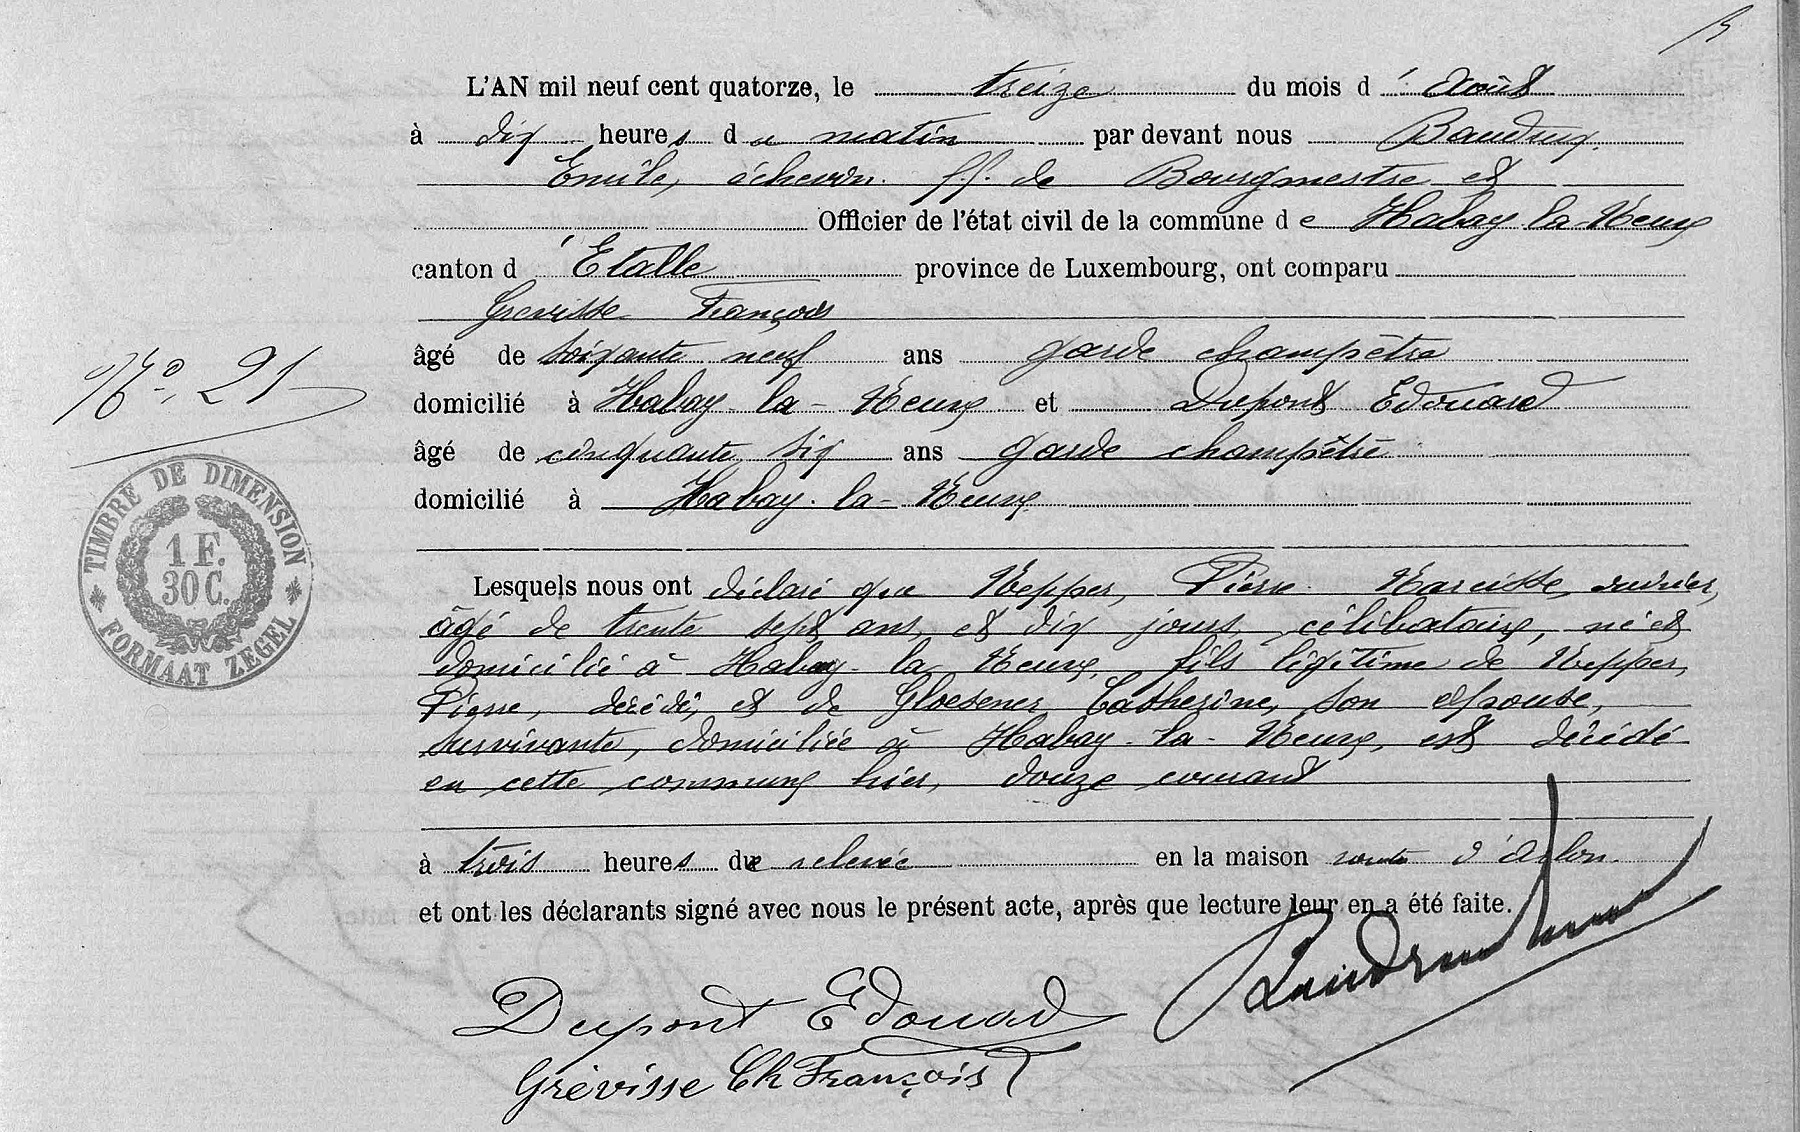 L'AN mil neuf cent quatorze, le treize du mois d' Août
à dix heures du matin par devant nous Baudrux,
Emile, échevin ff. de Bourgmestre et
Officier de l'état civil de la commune de Habay-la-Neuve
canton d'Etalle province de Luxembourg, ont comparu
Grevisse François
âgé de soixante neuf ans garde champêtre
domicilié à Habay-la-Neuve et Dupont Edouard
âgé de cinquante six ans garde champêtre
domicilié à Habay-la-Neuve
N° 21
TIMBRE DE DIMENSION
1 F.
30 C.
FORMAAT ZEGEL
Lesquels nous ont déclaré que Nepper, Pierre Narcisse, ouvrier,
âgé de trente sept ans, et dix jours, célibataire, né et
domicilié à Habay-la-Neuve, fils légitime de Nepper,
Pierre, décédé, et de Gloesener Catherine, son épouse,
survivante, domiciliée à Habay-la-Neuve, est décédé
en cette commune hier, douze courant
à trois heures de relevée en la maison route d'Arlon
et ont les déclarants signé avec nous le présent acte, après que lecture leur en a été faite.
Dupont Edouard
Grévisse Ch François